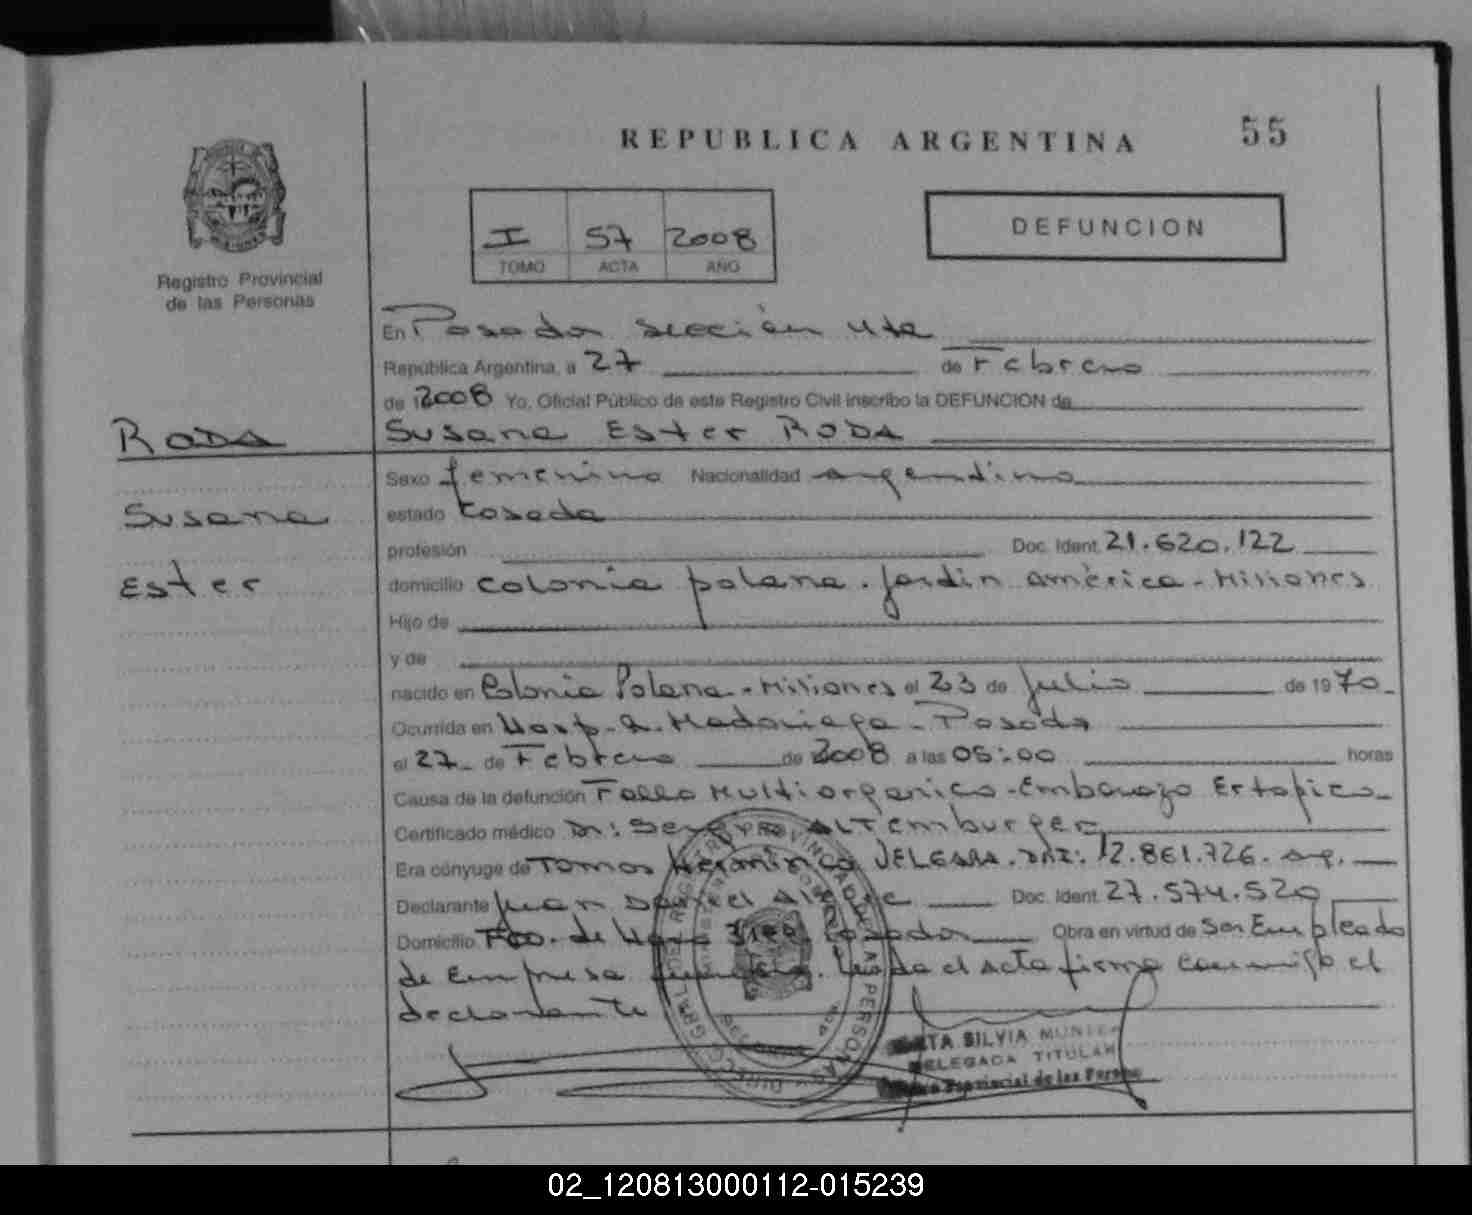 REPUBLICA ARGENTINA
55
I 57 2008
TOMO ACTA AÑO
DEFUNCION
Registro Provincial
de las Personas
En Posadas sección 4ta
República Argentina, a 27 de Febrero
de 2008 Yo, Oficial Público de este Registro Civil inscribo la DEFUNCION de
RODA
Susana Ester RODA
Sexo femenino Nacionalidad argentina
Susana
estado Casada
profesión Doc. Ident. 21.620.122
Ester
domicilio Colonia polana. Jardín américa - Misiones
Hijo de
y de
nacido en Colonia Polana - Misiones el 23 de Julio de 1970
Ocurrida en Hosp. R. Madariaga - Posadas
el 27 de Febrero de 2008 a las 05:00 horas
Causa de la defunción Fallo Multiorganico - Embarazo Ectopico
Certificado médico Dr: Sergio ALTemburger
Era cónyuge de Tomas DELGADO. DNI: 12.861.726. arg.
Declarante Juan Daniel Doc. Ident. 27.574.520
Domicilio Fco. de Haro Posadas Obra en virtud de Ser Empleado
de Empresa funebre. Leida el acta firma conmigo el
declarante
SILVIA
DELEGADA TITULAR
Provincial de las Personas
02_120813000112-015239